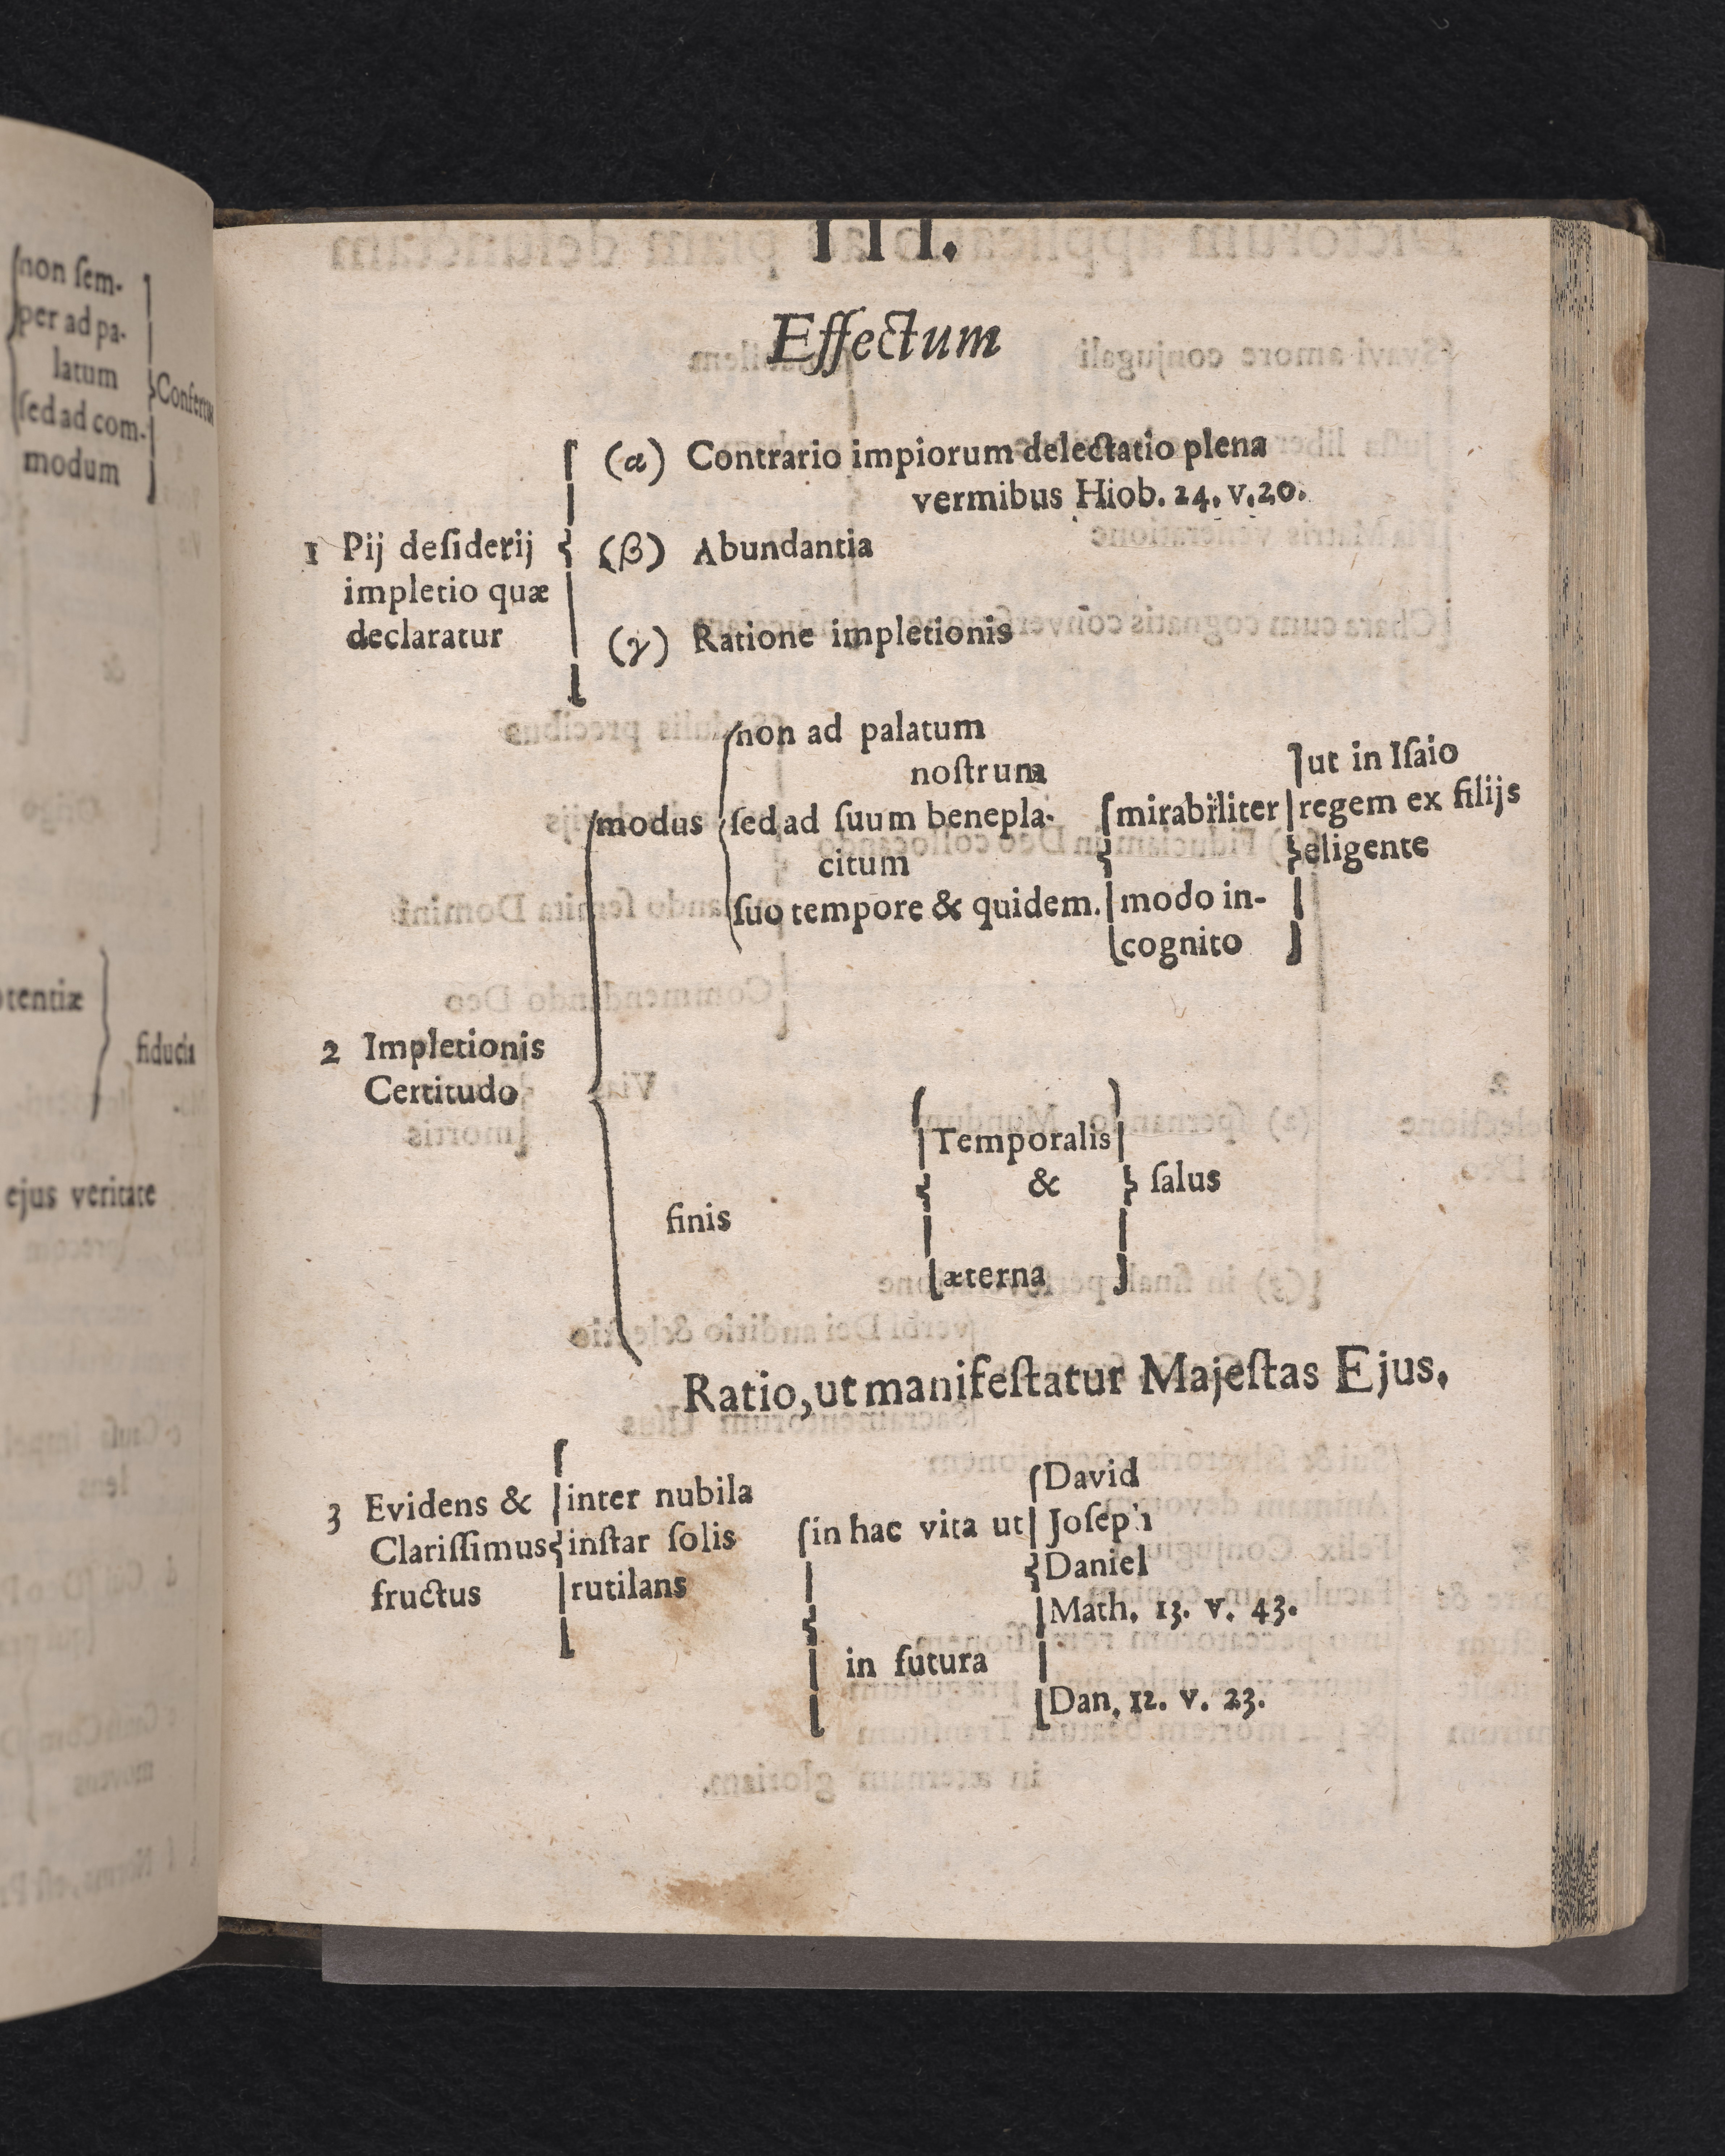 non ſem-
per ad pa-
latum
ſed ad com-
modum
fiducia
ejus veritate
III.
Effectum
(α) Contrario impiorum delectatio plena
vermibus Hiob. 24. v. 20.
1 Pij deſiderij
impletio quæ
declaratur
(β) Abundantia
(γ) Ratione impletionis
2 Impletionis
Certitudo
modus
non ad palatum
noſtrum
ſed ad ſuum benepla-
citum
ſuo tempore & quidem.
mirabiliter
modo in-
cognito
ut in Iſaio
regem ex filijs
eligente
finis
Temporalis
&
æterna
ſalus
Ratio, ut manifeſtatur Majeſtas Ejus.
3 Evidens &
Clariſſimus
fructus
inter nubila
inſtar ſolis
rutilans
in hac vita ut
David
Joſeph
Daniel
Math. 13. v. 43.
in futura
Dan. 12. v. 23.